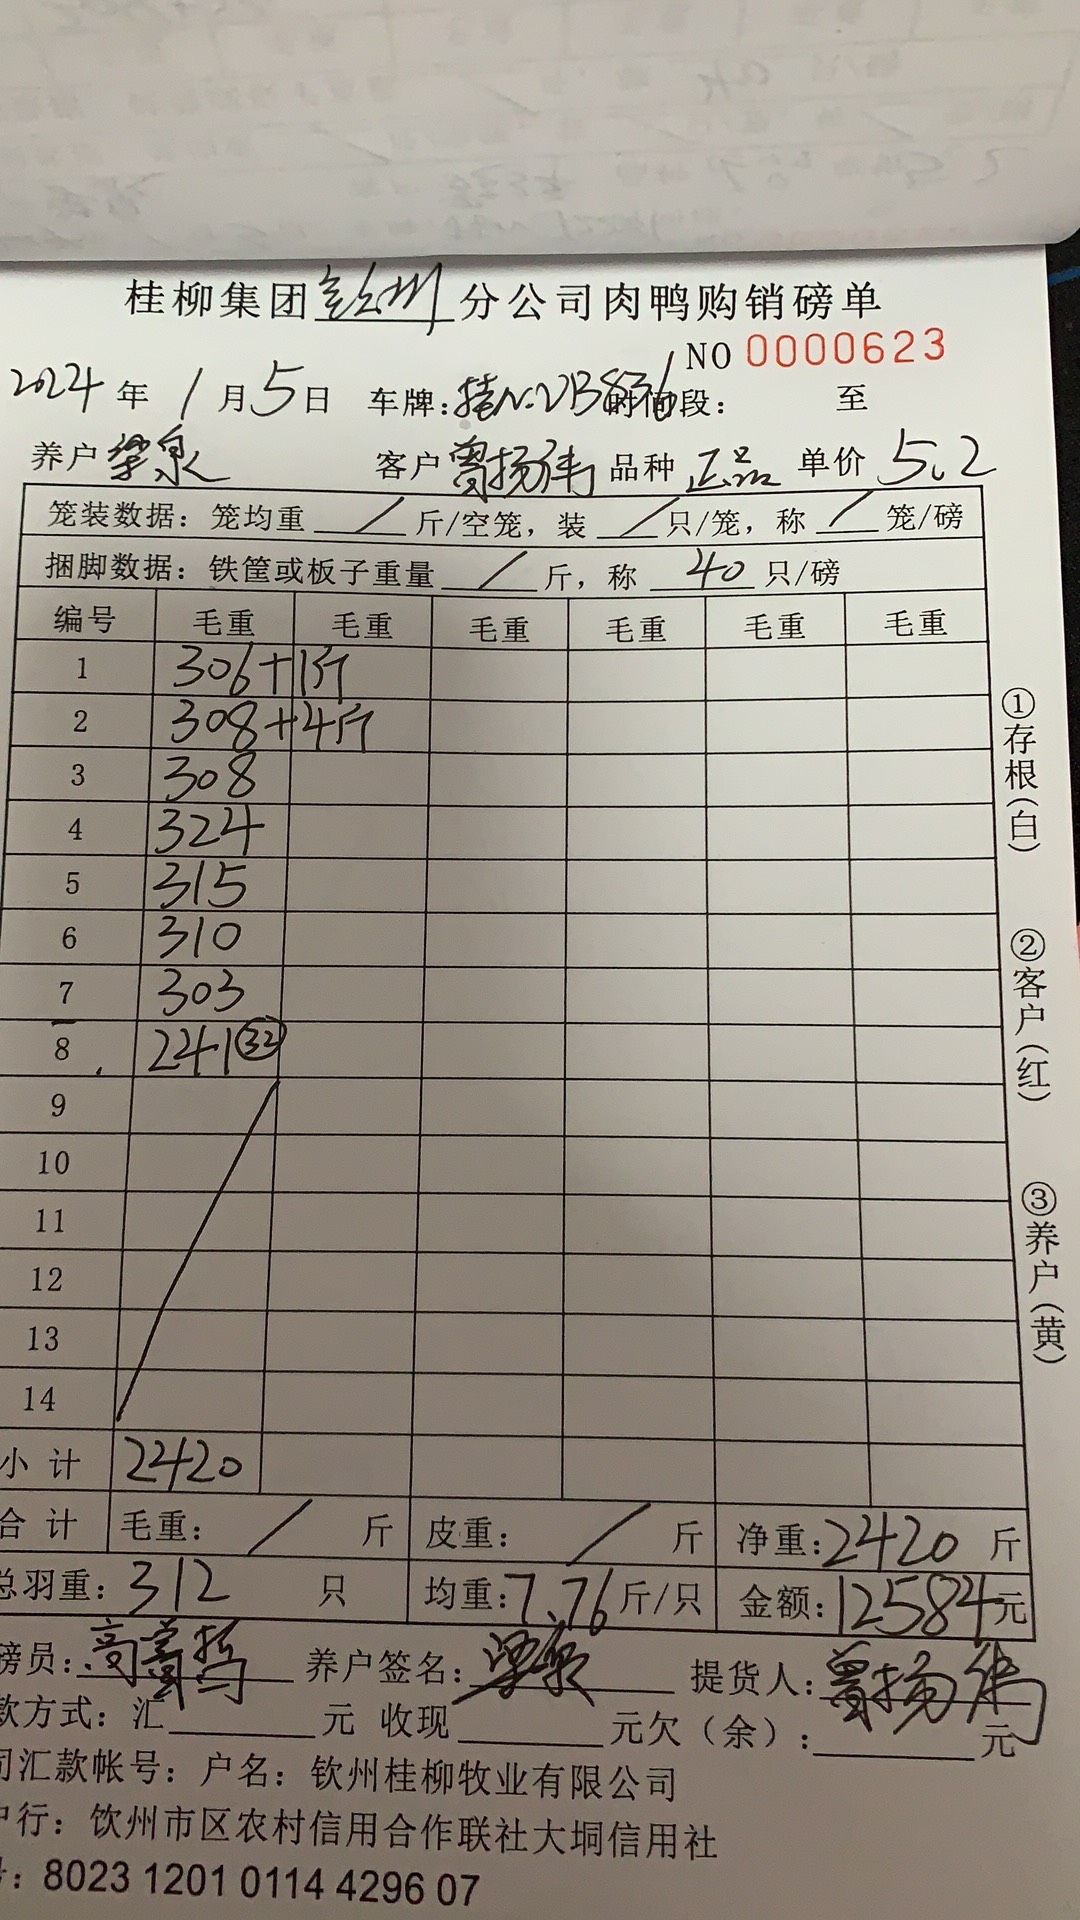 桂柳集团钦州分公司肉鸭购销磅单
NO 0000623
2024年1月5日 车牌:桂N·VB836 时间段: 至
养户梁泉 客户曾扬伟 品种正品 单价5.2
笼装数据: 笼均重 / 斤/空笼, 装 / 只/笼, 称 / 笼/磅
捆脚数据: 铁筐或板子重量 / 斤, 称 40 只/磅
编号 毛重 毛重 毛重 毛重 毛重 毛重
1 306+1斤
2 308+4斤
3 308
4 324
5 315
6 310
7 303
8 241 32
9
10
11
12
13
14
小计 2420
合计 毛重: / 斤 皮重: / 斤 净重:2420斤
总羽重: 312 只 均重:7.76斤/只 金额:12584元
磅员: 养户签名:梁泉 提货人:曾扬伟
款方式: 汇 元 收现 元欠(余): 元
司汇款帐号: 户名: 钦州桂柳牧业有限公司
户行: 钦州市区农村信用合作联社大垌信用社
号: 8023 1201 0114 4296 07
①存根(白)
②客户(红)
③养户(黄)